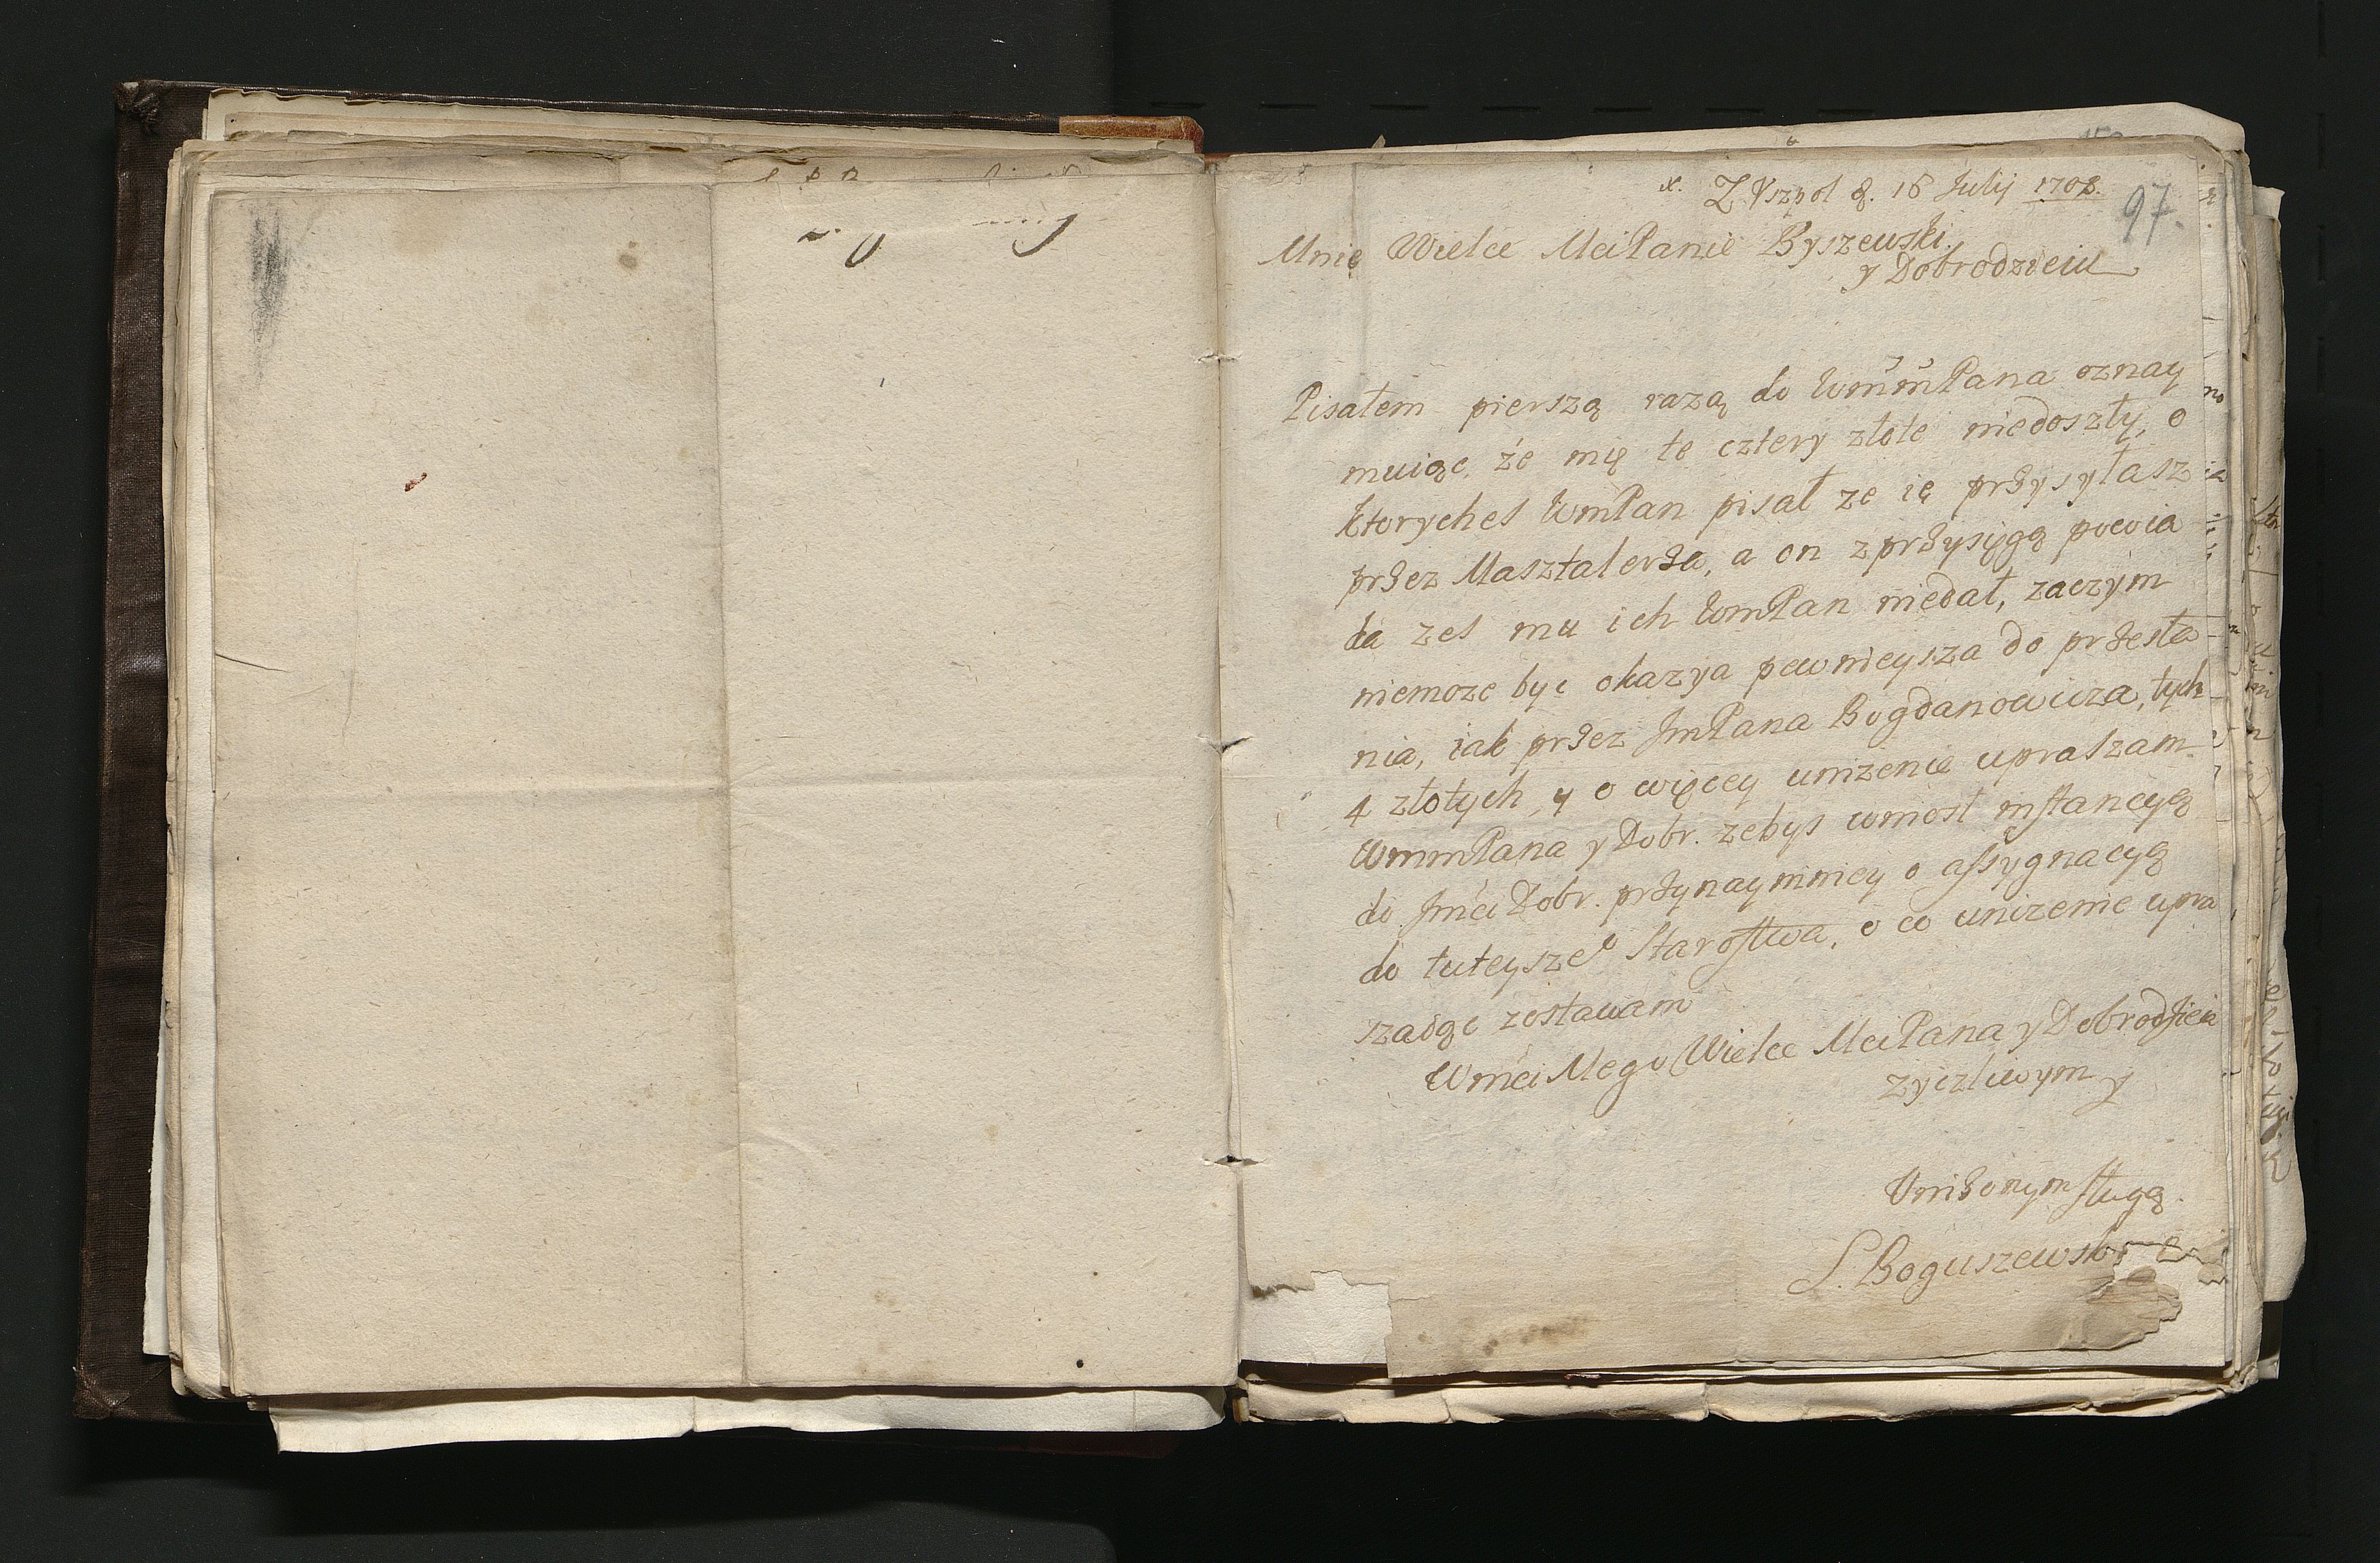 x. Z Vszpol d. 16 Julij 1708.
97.
Mnie Wielce MciPanie Byszewski
y Dobrodzieiu
Pisałem pierszą razą do WmmPana oznay
muiąc, że mię te cztery złote niedoszły, o
ktoryches WmPan pisał ze ię przysyłasz
przez Masztalerza, a on z przysięgą powia
da zes mu ich WmPan niedał, zaczym
niemoze byc okazya pewnieysza do przesła
nia, iak przez JmPana Bogdanowicza, tych
4 złotych, y o więcey unizenie upraszam
WmmPana y Dobr. zebys wniosł instancyą
do Jmci Dobr. przynaymniey o assygnacyą
do tuteysze° Starostwa, o co unizenie upra
szaiąc zostawam
Wmci Mego Wielce MciPana y Dobrodzieia
zyczliwym y
Vnizonym sługą.
S. Boguszewski